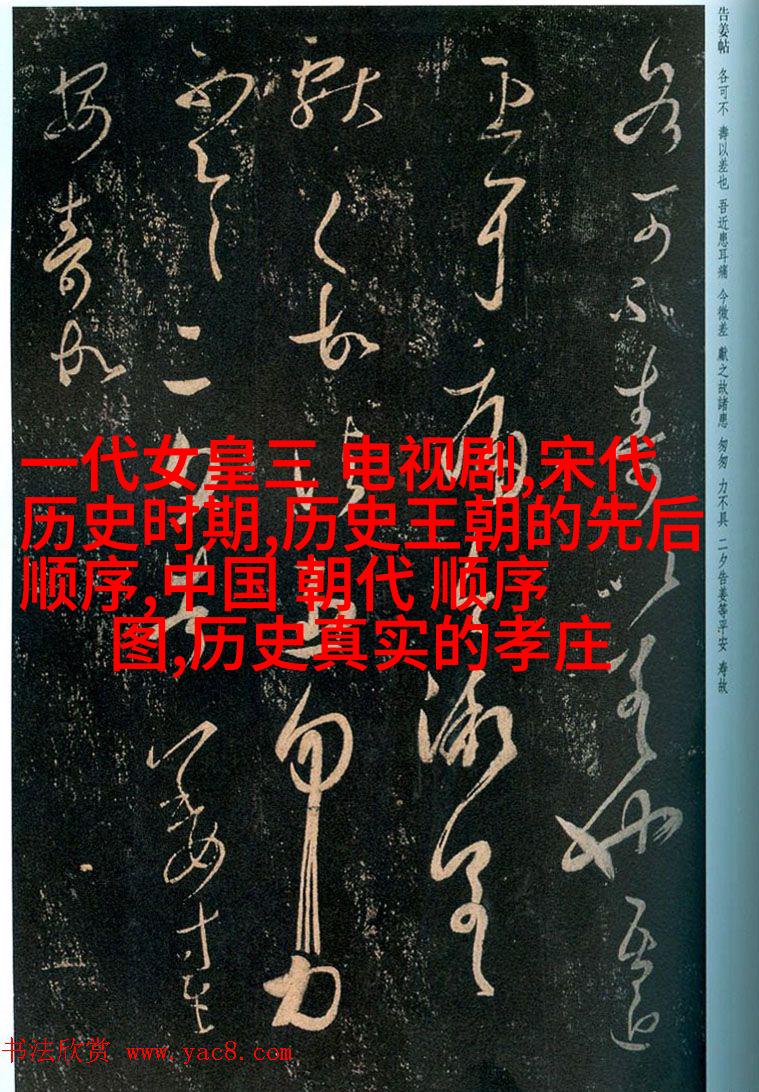 告姜帖 各可不 壽以差也 吾近患耳痛 今微差 獻之故諸患 匆匆 力不具 二夕告姜等平安 寿故
各可不壽以差也吾近
患耳痛今微差
一代女皇三 电视剧,宋代
历史时期,历史王朝的先后
顺序,中国 朝代 顺序
图,历史真实的孝庄
书法欣赏 www.yac8.com